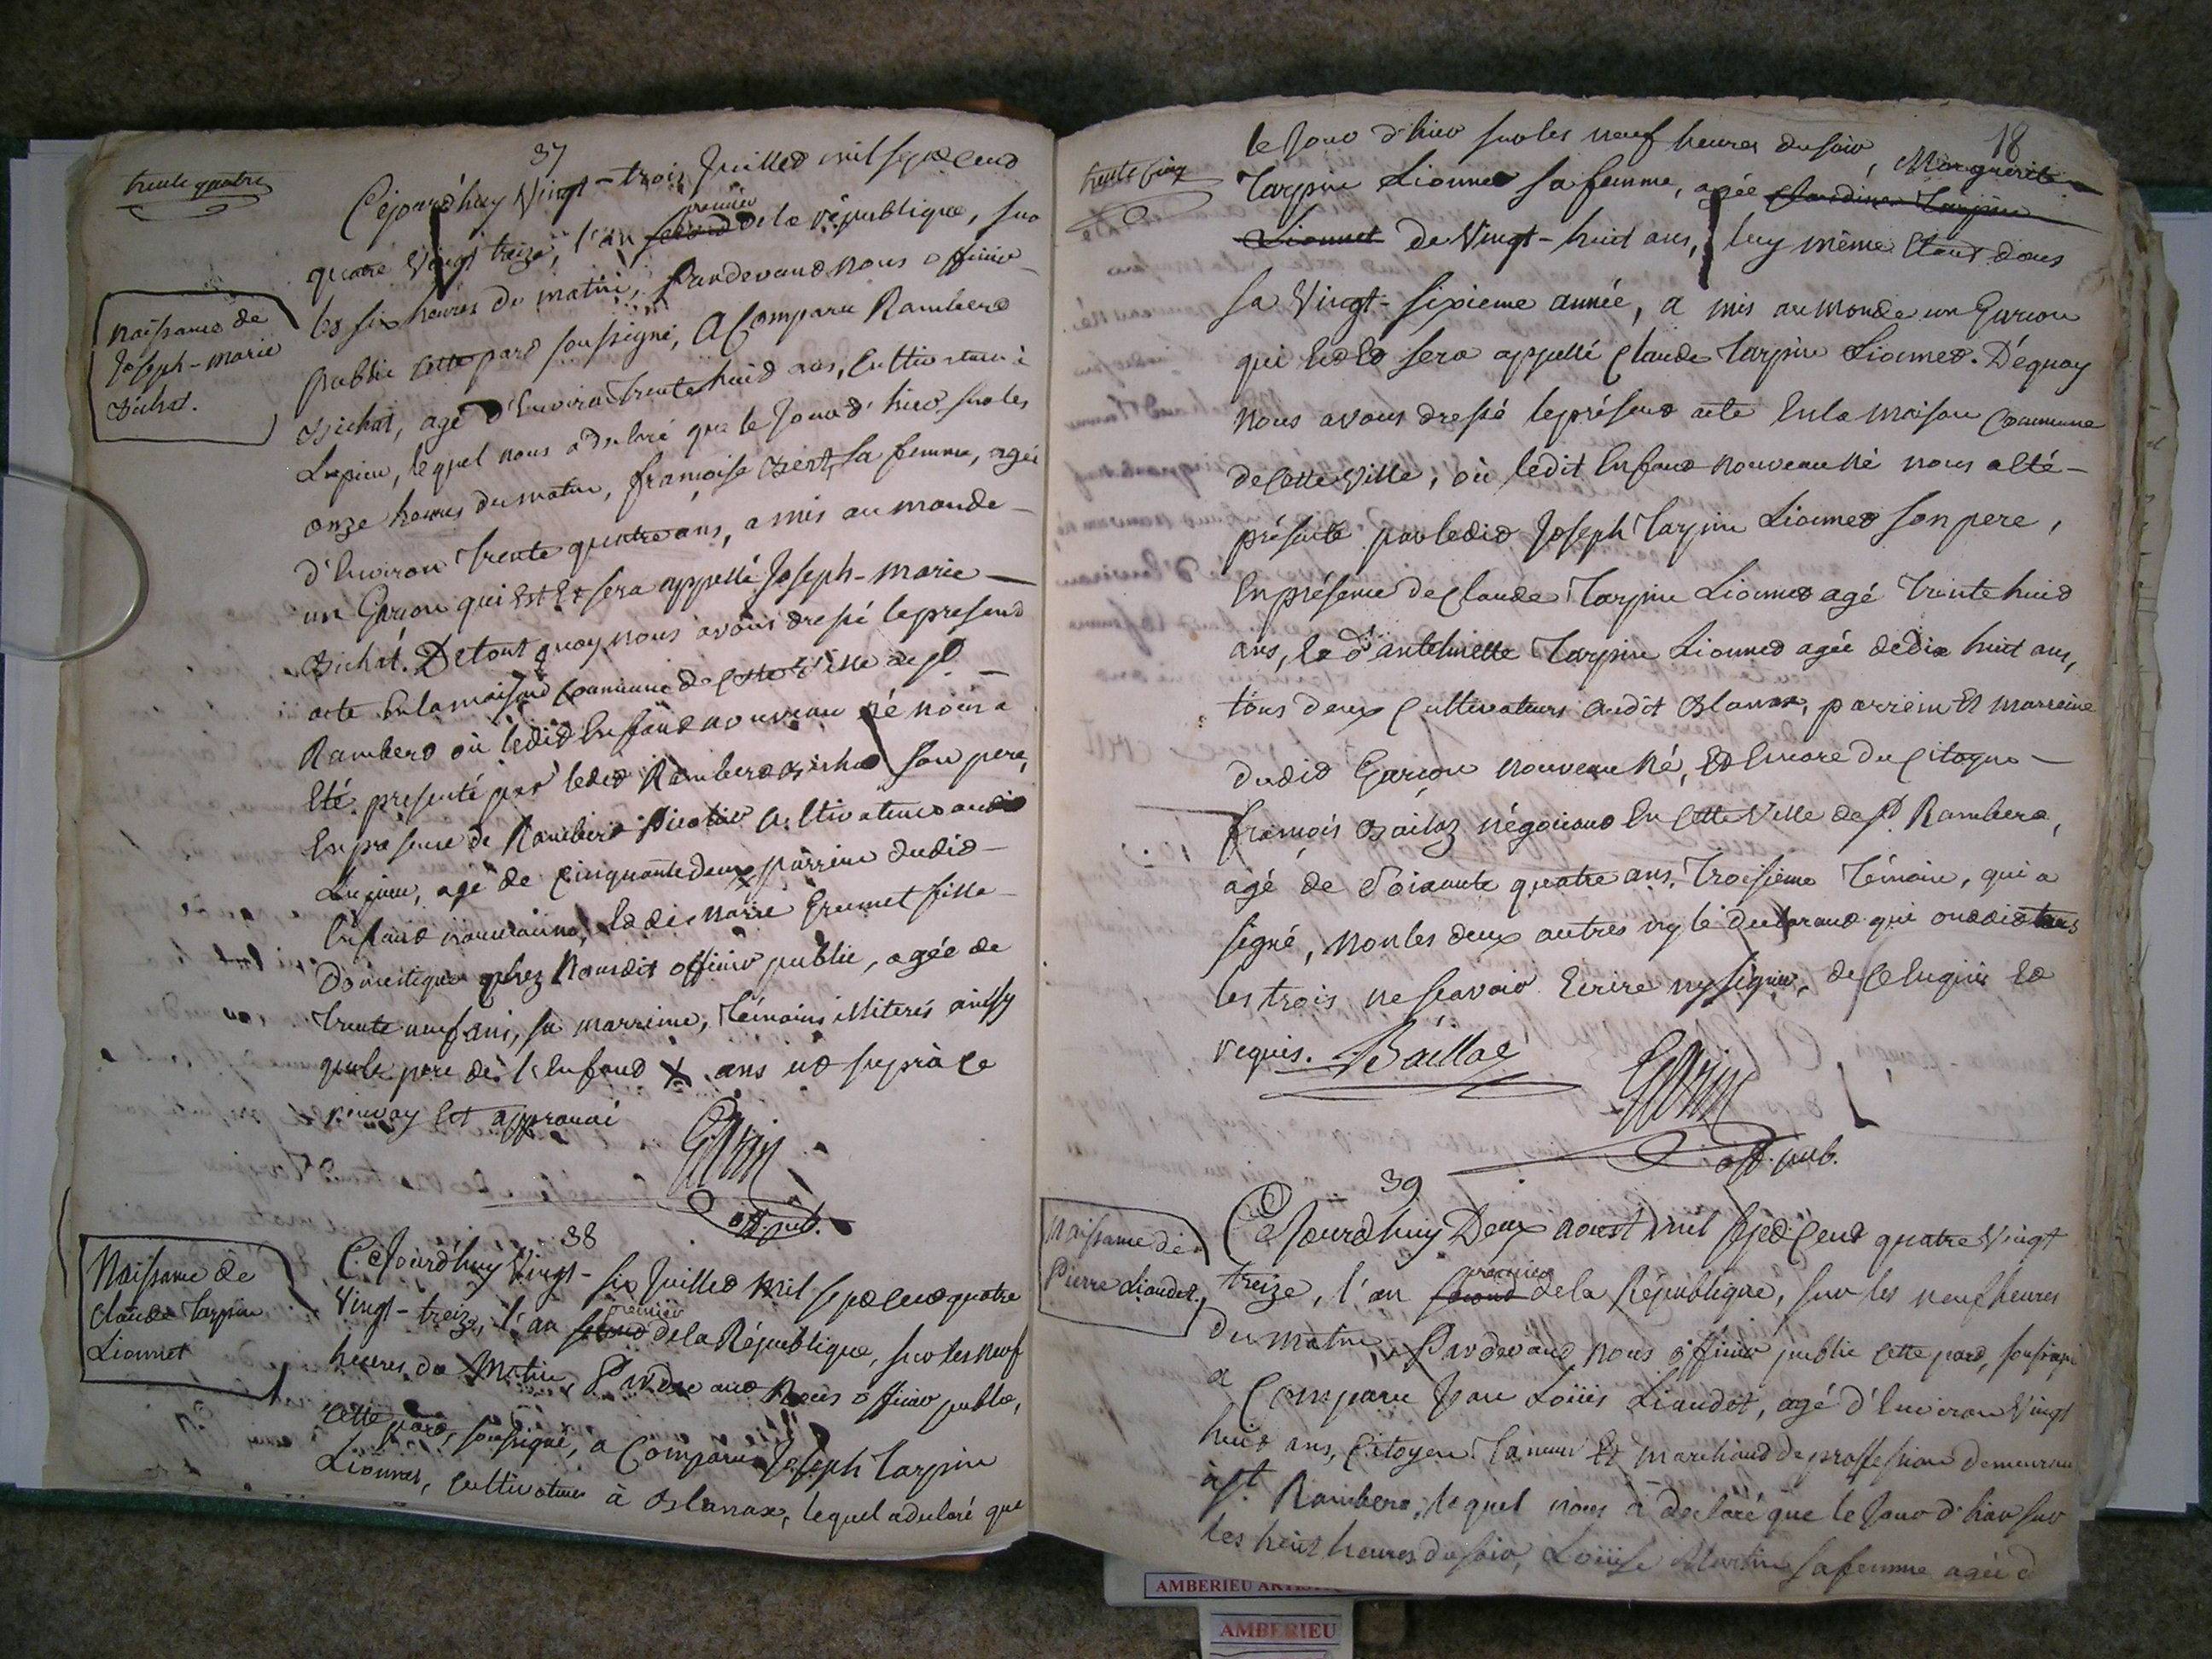 trente quatre
37
Cejourd'huy Vingt-trois Juillet mil sept cend
quatre Vingt treize, l'an second premier de la république, sur
les six heures du matin, Pardevand nous officier
public cette part soussigné, a Comparu Ramberd
Bichat, agé d'Environ trente huid ans, Cultivateur à
Lupieu, lequel nous a declaré que le Jour d'hier sur les
onze heures du matin, françoise sa femme, agée
d'Environ trente quatre ans, a mis au monde
un Garçon qui Est Et sera appellé Joseph-Marie
Bichat. De tout quoy nous avons dressé le presend
acte En la maison Commune de Cette Ville de St.
Ramberd où ledid Enfand nouveau né nous a
Eté presenté par ledid Ramberd Bichat son pere,
En presence de Ramberd Cultivateur audid
Lupieu, agé de Cinquante deux X parrein dudid
Enfand nouveau né, Ed de Marie Grumet fille
Domestique chez Nousdit officier public, agée de
trente neuf ans, sa marreine, témoins illiterés ainsy
que le pere de l'Enfand X ans ud suprà Ce
renvoy Est approuvé
Garin
off. pub.
Naissance de
Joseph-Marie
Bichat.
38
Naissance de
Claude Tarpin
Lionnet
Cejourd'huy Vingt-six Juilled Mil sept Cend quatre
Vingt-treize, l'an second premier de la République, sur les neuf
heures du Matin, Pardevand Nous officier public,
cette pard, soussigné, a Comparu Joseph Tarpin
Lionned, Cultivateur à Blanaz, lequel a declaré que
18
trente cinq
le Jour d'hier sur les neuf heures du soir, Marguerite
Tarpin Lionned sa femme, agée Claudine Tarpin
Lionnet de Vingt-huit ans, luy même Etant dans
sa Vingt-sixieme année, a mis au monde un Garçon
qui Est Ed sera appellé Claude Tarpin Lionned. De quoy
nous avons dressé le présend acte En la maison Commune
de Cette Ville, où ledit Enfand nouveau né nous a Eté
présenté par ledid Joseph Tarpin Lionned son pere,
En présence de Claude Tarpin Lionned agé trente huid
ans, Ed d'antelmette Tarpin Lionned agée de dix huit ans,
tous deux Cultivateurs audit Blanaz, parrein Et marreine
dudid Garçon nouveau né, Ed Encore du Citoyen
françois Baillaz négociand En Cette Ville de St. Ramberd,
agé de soixante quatre ans, troisieme témoin, qui a
signé, non les deux autres ny le declarand qui ond did tous
les trois ne sçavoir Ecrire ny signer, de Ce Enquis Ed
requis. Baillaz
Garin
off. pub.
39
Naissance de
Pierre Liaudet.
Cejourdhuy Deux aoust mil sept Cend quatre Vingt
treize, l'an second premier de la République, sur les neuf heures
du matin, Pardevand Nous officier public cette pard, soussigné
a Comparu Jean Loüis Liaudet, agé d'Environ Vingt
huit ans, Citoyen Taneur Et marchand de profession demeurand
à St. Ramberd, lequel nous a declaré que le Jour d'hier sur
les huit heures du soir, Loüise Martin sa femme agée d
AMBERIEU
AMBERIEU